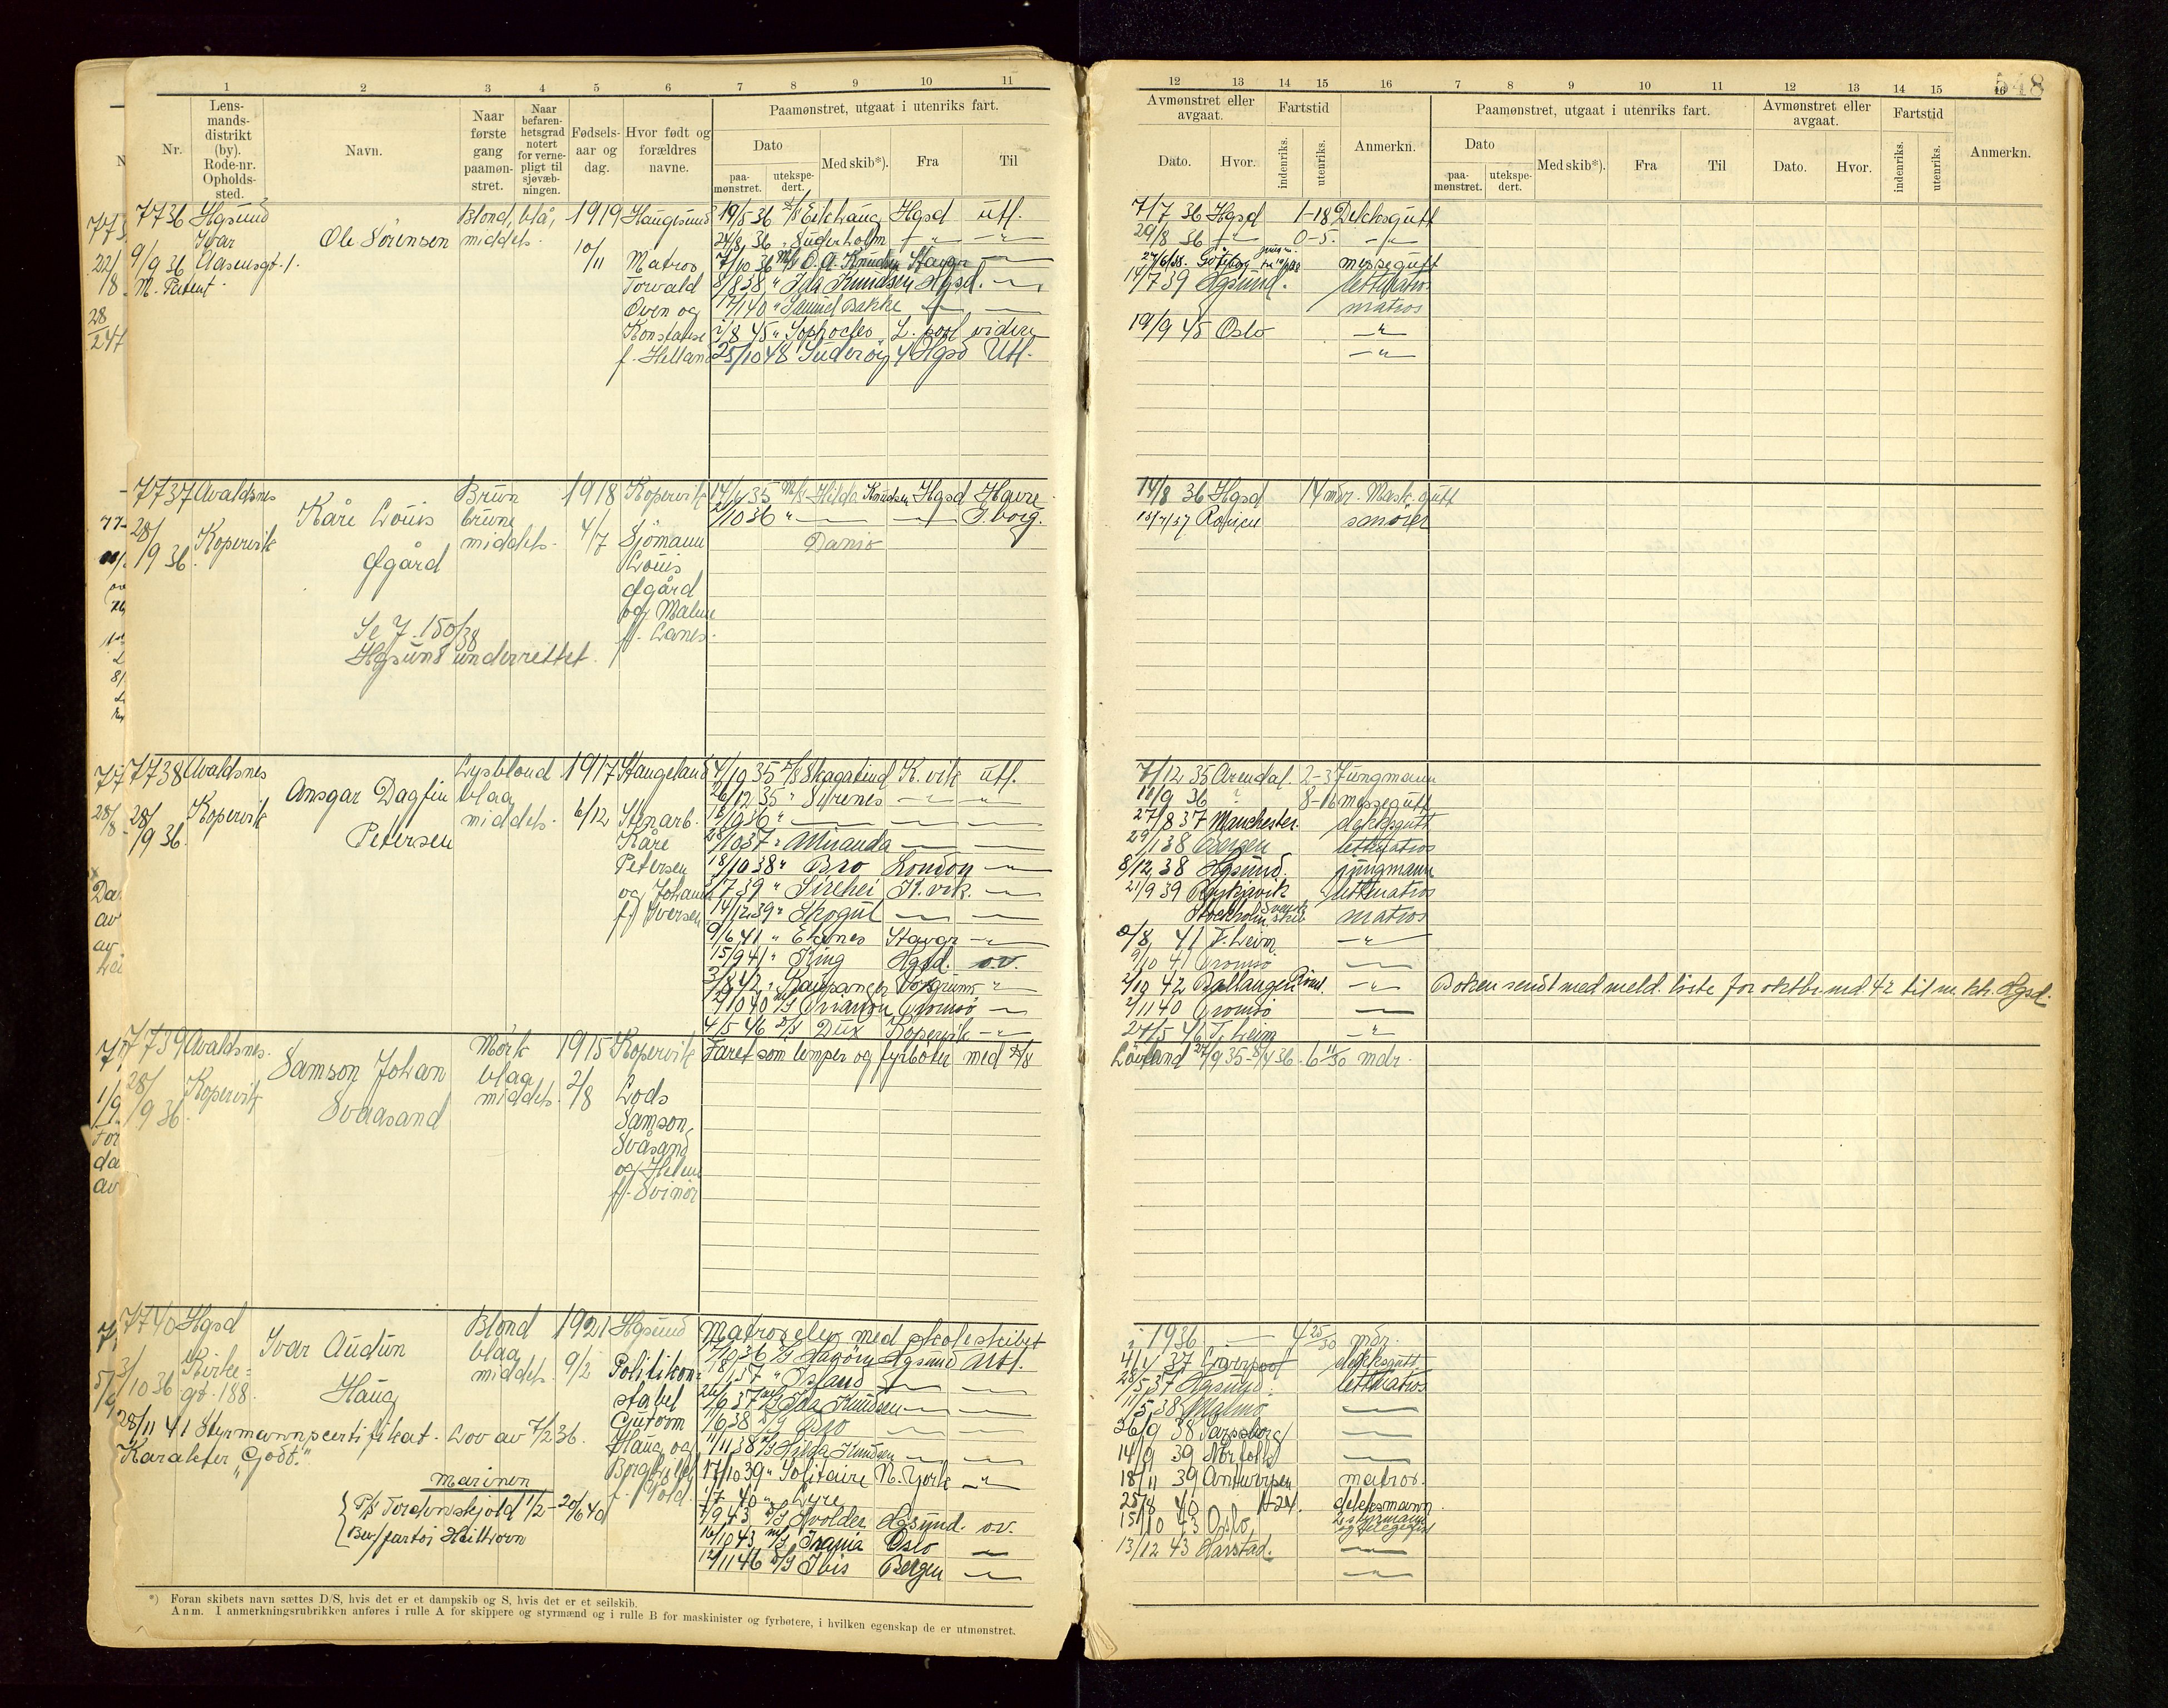 1 2 3 4 5 6 7 8 9 10 11
Nr.
Lens-
mands-
distrikt
(by).
Rode-nr.
Opholds-
sted.
Navn.
Naar
første
gang
paamøn-
stret.
Naar
befaren-
hetsgrad
notert
for verne-
pligt til
sjøvæb-
ningen.
Fødsels-
aar og
dag.
Hvor født og
forældres
navne.
Paamønstret, utgaat i utenriks fart.
Dato
paa-
mønstret.
utekspe-
dert.
Med skib*).
Fra
Til
12 13 14 15 16 7 8 9 10 11 12 13 14 15 16
548
Avmønstret eller
avgaat.
Dato.
Hvor.
Fartstid
indenriks.
utenriks.
Anmerkn.
Paamønstret, utgaat i utenriks fart.
Dato
paa-
mønstret.
utekspe-
dert.
Med skib*).
Fra
Til
Avmønstret eller
avgaat.
Dato.
Hvor.
Fartstid
indenriks.
utenriks.
Anmerkn.
7736 Hgsund
Ivar
9/9 36 Aasensgt. 1.
M. Patent
Ole Sörensen
Blond, blå,
middels.
1919
10/11
Haugesund
Matros
Torvald
Øven og
Konstanse
f. Helland
19/5 36 Eikhaug Hgsd utl. 7/7 36 Hgsd 1-18 Dekksgutt
24/8 36 " Suderholm 29/8 36 0-5.
7/10 36 M/S O. A. Knudsen Stavgr 27/6/38. Göteborg messegutt
8/8 38 " Ida Knudsen Hgsd. 14/7 39 Hgsund. lettmatros
17/1 40 " Samuel Bakke matros
2/8 45 " Sophocles L. pool videre 19/9 45 Oslo
25/10 48 Suderöy 4 Hgsd Utl.
7737 Avaldsnes
28/9 36. Kopervik
Kåre Louis
Øgård
Se J. 150/38
Hgsund underrettet.
Brun
brune
middels.
1918
4/7
Kopervik
Sjömann
Louis
Øgård
og Malene
f. Lanes.
14/6 35 M/S Hilda Knudsen Hgsd Havre 14/8 36 Hgsd 14 mdr. Mask. gutt
2/10 36 " J. borg. smörer
Danio
7738 Avaldsnes
28/9 36. Kopervik
Ansgar Dagfin
Petersen
Lysblond
blaa
middels.
1917
6/12
Stangeland
Stenarb.
Kåre
Petersen
og Johanne
f. Iversen
4/10 35 D/S Skagatind K. vik utl. 7/12 35 Arendal. 2-3 Jungmann
26/12 35 " Sirenes 11/9 36 ? 8-16 messegutt
16/10 36 " 27/8 37 Manchester. dekksgutt
28/10 37 " Miranda 29/1 38 Bergen lettmatros
18/10 38 " Bro London 8/12 38 Hgsund. jungmann
3/7 39 " Sirehei K. vik. 21/9 39 Reykjavik lettmatros
14/12 39 " Skogul Stockholm matros
9/6 41 " Eknes Stavgr 2/8 41 T. heim
15/9 41 " King Hgsd. o.v. 9/10 41 Tromsö
3/8 42 " Kaupanger Porsgrunn 2/10 42 Ballangen
Boken sendt med meld. liste for oktbr. md. 42 til m. ktr. Hgsd.
12/10 40 M/S Oriarson Tromsö 2/11 40 Tromsö
4/5 46 D/S Dux Kopervik 27/5 46 T. heim
7739 Avaldsnes.
28/9 36. Kopervik
Samson Johan
Svaasand
Mörk
blaa
middels.
1915
2/8
Kopervik
Lods
Samson
Svåsand
og Helene
f. Svinör
Faret som lemper og fyrböter med D/S Lövland 27/9 35 - 8/4 36. 6 11/30 mdr.
7740 Hgsd
3/10 36 Kirke-
gt. 188.
Ivar Audun
Haug
Blond
blaa
middels.
1921
9/2
Hgsund
Politikon-
stabel
Guttorm
Haug og
Borghild
f. Vold.
28/11 41 Styrmannscertifikat. Lov av 7/2 36.
Karakter "Godt."
marinen
P/s Tordenskjold 1/2 - 20/6 40
Bev. fartöi Heilhorn
Matroselev med skoleskibet i 1936 4 25/30 mdr.
17/10 36 D/S Hagörn Hgsund Utl. 4/1 37 Liverpool dekksgutt
18/1 37 " Island 28/5 37 Hgsund. lettmatros
26/6 37 M/S Ida Knudsen 11/5 38 Malmö
1/6 38 D/S Bro 26/9 38 Sarpsborg
11/11 38 M/S Hilda Knudsen 14/9 39 Norfolk
17/10 39 " Solitaire N. York 18/11 39 Antwerpen matros.
1/7 40 " Lyre 25/8 40 1-24. dekksmann
1/9 43 D/S Hvolder Hgsund. o.v. 15/10 43 Oslo, 2. styrmann
og telegrafist
16/10 43 M/S Irania Oslo 13/12 43 Harstad.
12/11 46 D/S Ibis Bergen
*) Foran skibets navn sættes D/S, hvis det er et dampskib og S, hvis det er et seilskib.
Anm. I anmerkningsrubrikken anføres i rulle A for skippere og styrmænd og i rulle B for maskinister og fyrbøtere, i hvilken egenskap de er utmønstret.